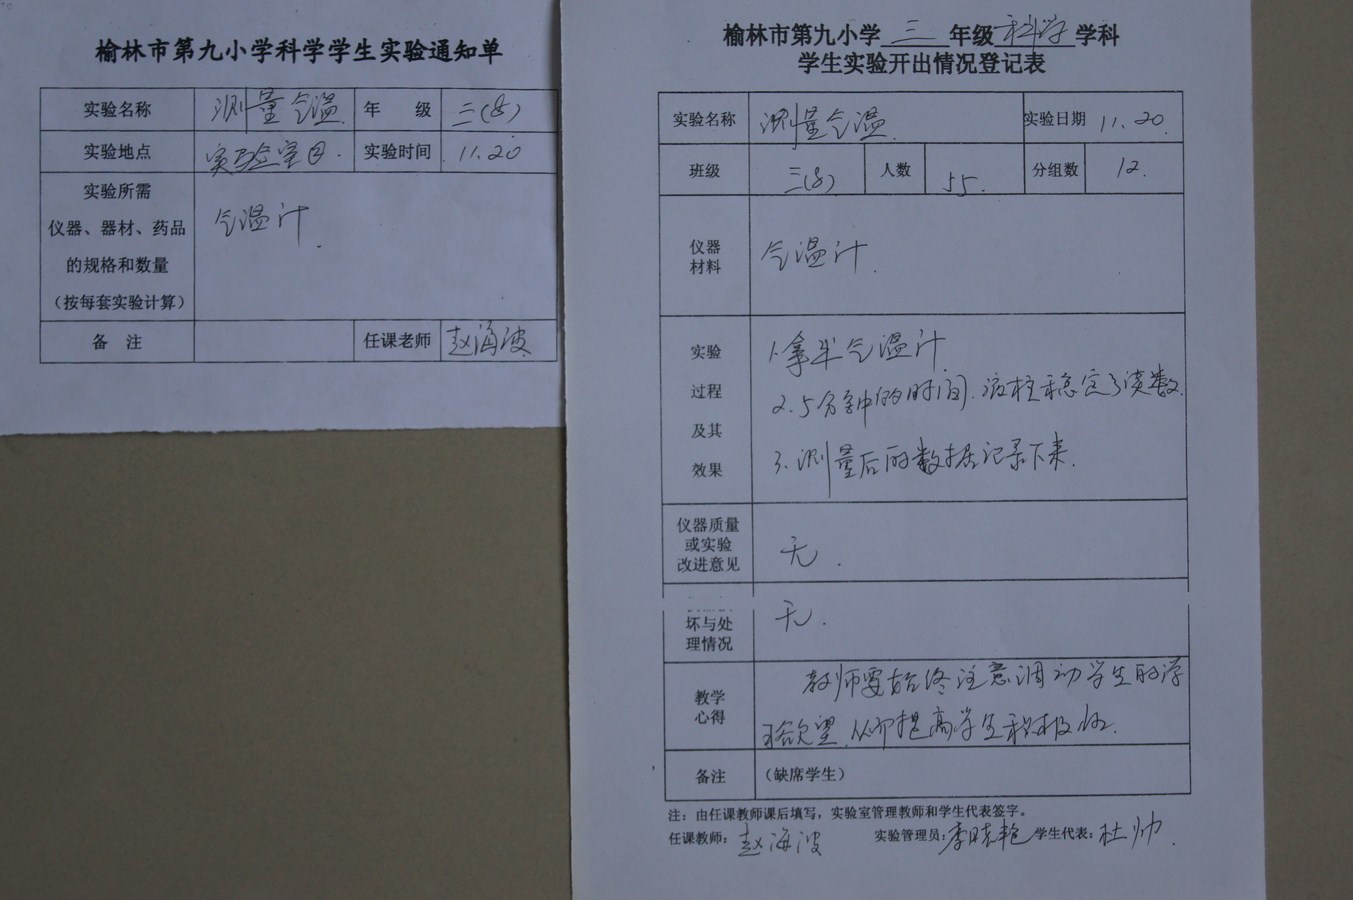 榆林市第九小学科学学生实验通知单
实验名称 测量气温 年 级 三(8)
实验地点 实验室 实验时间 11.20
实验所需
仪器、器材、药品
的规格和数量
(按每套实验计算)
气温计.
备 注 任课老师 赵海波
榆林市第九小学 三 年级 科学 学科
学生实验开出情况登记表
实验名称 测量气温. 实验日期 11.20.
班级 三(8) 人数 55. 分组数 12.
仪器
材料
气温计.
实验
过程
及其
效果
1.拿出气温计
2.5分钟的时间.液柱稳定了读数.
3.测量后的数据记录下来.
仪器质量
或实验
改进意见
无.
坏与处
理情况
无.
教学
心得
教师要始终注意调动学生的学
欲望,从而提高学生积极性.
备注 (缺席学生)
注:由任课教师课后填写,实验室管理教师和学生代表签字。
任课教师: 赵海波 实验管理员: 李晓艳 学生代表: 杜帅.